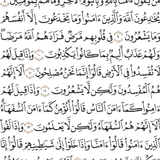 يُخَٰدِعُونَ ٱللَّهَ وَٱلَّذِينَ ءَامَنُوا۟ وَمَا يَخْدَعُونَ إِلَّآ أَنفُسَهُمْ
وَمَا يَشْعُرُونَ ۝ فِى قُلُوبِهِم مَّرَضٌ فَزَادَهُمُ ٱللَّهُ مَرَضًا
وَلَهُمْ عَذَابٌ أَلِيمٌۢ بِمَا كَانُوا۟ يَكْذِبُونَ ۝ وَإِذَا قِيلَ لَهُمْ
لَا تُفْسِدُوا۟ فِى ٱلْأَرْضِ قَالُوٓا۟ إِنَّمَا نَحْنُ مُصْلِحُونَ ۝
أَلَآ إِنَّهُمْ هُمُ ٱلْمُفْسِدُونَ وَلَٰكِن لَّا يَشْعُرُونَ ۝ وَإِذَا قِيلَ
لَهُمْ ءَامِنُوا۟ كَمَآ ءَامَنَ ٱلنَّاسُ قَالُوٓا۟ أَنُؤْمِنُ كَمَآ ءَامَنَ ٱلسُّفَهَآءُ
أَلَآ إِنَّهُمْ هُمُ ٱلسُّفَهَآءُ وَلَٰكِن لَّا يَعْلَمُونَ ۝ وَإِذَا لَقُوا۟